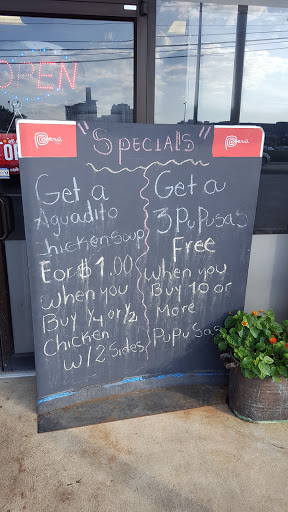 OPEN
Perú
Perú
"Specials"
Get a
Aguadito
chicken soup
For $1.00
when you
Buy 1/4 or 1/2
Chicken
w/2 Sides
Get a
3 PuPusas
Free
when you
Buy 10 or
More
PuPusas